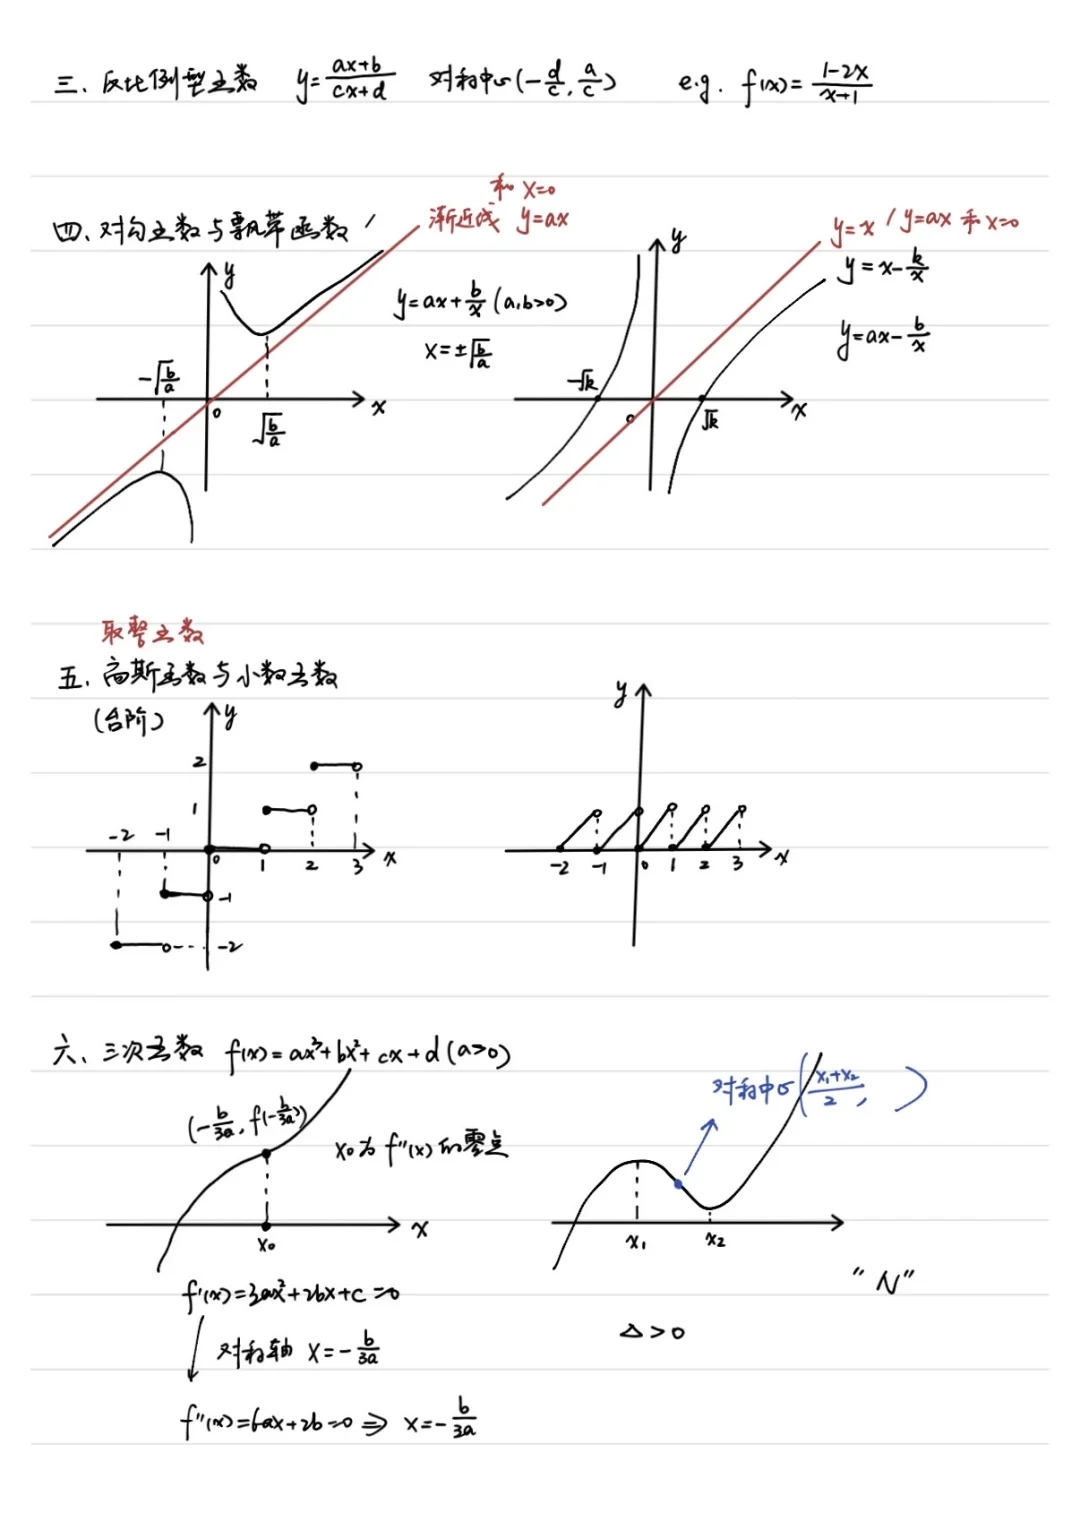 三、反比例型函数 y=\frac{ax+b}{cx+d} 对称中心(-\frac{d}{c}, \frac{a}{c}) e.g. f(x)=\frac{1-2x}{x+1}
和 x=0
四、对勾函数与飘带函数
渐近线 y=ax
y
y=ax+\frac{b}{x} (a,b>0)
x=±\sqrt{\frac{b}{a}}
-\sqrt{\frac{b}{a}}
0
x
\sqrt{\frac{b}{a}}
y
y=x / y=ax 和 x=0
y=x-\frac{k}{x}
y=ax-\frac{b}{x}
-\sqrt{k}
0
\sqrt{k}
x
取整函数
五、高斯函数与小数函数
(台阶)
y
2
1
-2 -1
0 1 2 3 x
-1
-2
y
-2 -1 0 1 2 3 x
六、三次函数 f(x)=ax³+bx²+cx+d (a>0)
(-\frac{b}{3a}, f(-\frac{b}{3a}))
x₀为f''(x)的零点
x₀
x
对称中心(\frac{x₁+x₂}{2}, )
x₁ x₂
"N"
f'(x)=3ax²+2bx+c=0
△>0
对称轴 x=-\frac{b}{3a}
f''(x)=6ax+2b=0 ⇒ x=-\frac{b}{3a}